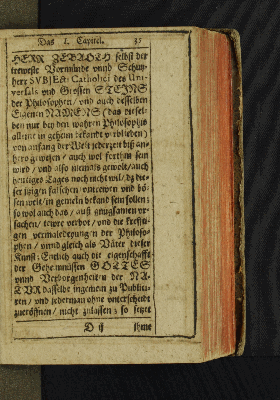 Das 1. Capitel. 35
HERR ZEBAOTH selbst der
treweste Vormünde vnnd Schutz-
herr SVBJEcti Catholici des Uni-
versals vnd Grossen STEINS
der Philosophen / vnd auch desselben
Eigenen NAMENS (das dersel-
ben nur bey den wahren Philosophis
alleine in geheim bekandt verblieben)
von anfang der Welt jederzeit biß an-
hero gewesen / auch wol forthin sein
wird / vnd also niemals gewolt / auch
heutiges Tages noch nicht wil / dz die-
ser jtzigen falschen vntrewen vnd bö-
sen welt / in gemein bekand sein sollen ;
so wol auch das / auß gnugsamen vr-
sachen / tewre verbot / vnd die krefti-
gen vermaledeyung in der Philoso-
phen / vnnd gleich als Väter dieser
Kunst ; Endlich auch die eigenschafft
der Geheimnüssen GOTTES
vnnd Verborgenheiten der NA-
TVR dasselbe ingemein zu Publici-
ren / vnd jederman ohne vnterscheidt
zueröffnen / nicht zulassen ; so setze
D ij ihme